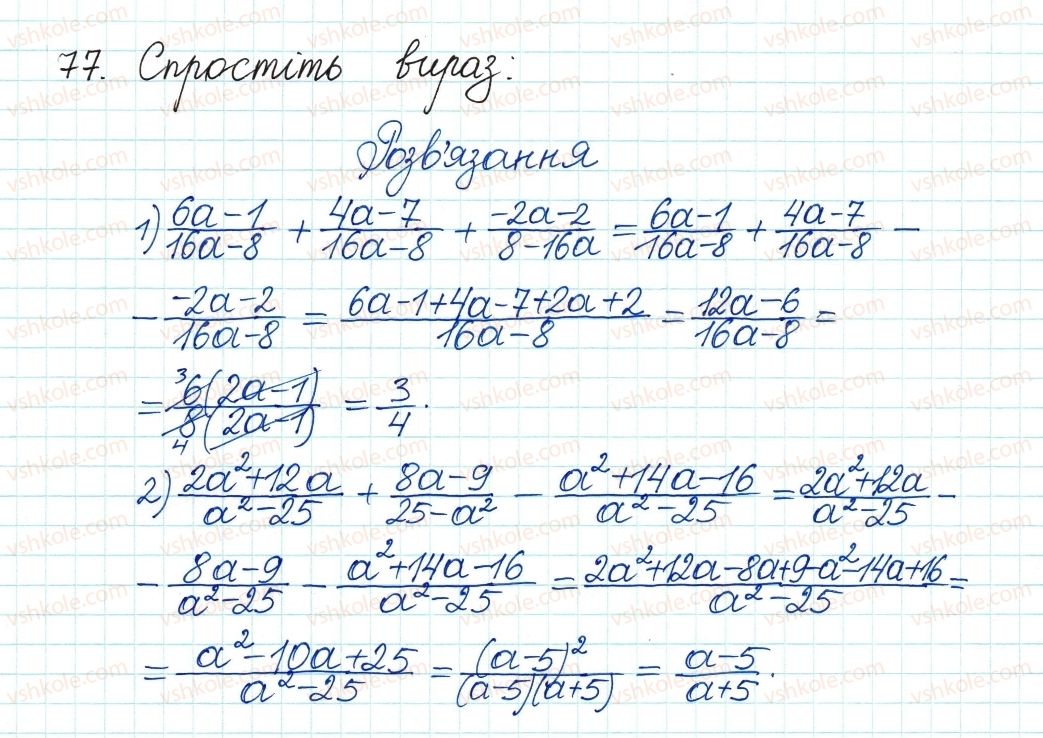 77. Спростіть вираз:
Розв'язання
1) (6a-1)/(16a-8) + (4a-7)/(16a-8) + (-2a-2)/(8-16a) = (6a-1)/(16a-8) + (4a-7)/(16a-8) -
- (-2a-2)/(16a-8) = (6a-1+4a-7+2a+2)/(16a-8) = (12a-6)/(16a-8) =
= ³6(2a-1)/₄8(2a-1) = 3/4.
2) (2a²+12a)/(a²-25) + (8a-9)/(25-a²) - (a²+14a-16)/(a²-25) = (2a²+12a)/(a²-25) -
- (8a-9)/(a²-25) - (a²+14a-16)/(a²-25) = (2a²+12a-8a+9-a²-14a+16)/(a²-25) =
= (a²-10a+25)/(a²-25) = (a-5)²/((a-5)(a+5)) = (a-5)/(a+5).
vshkole.com